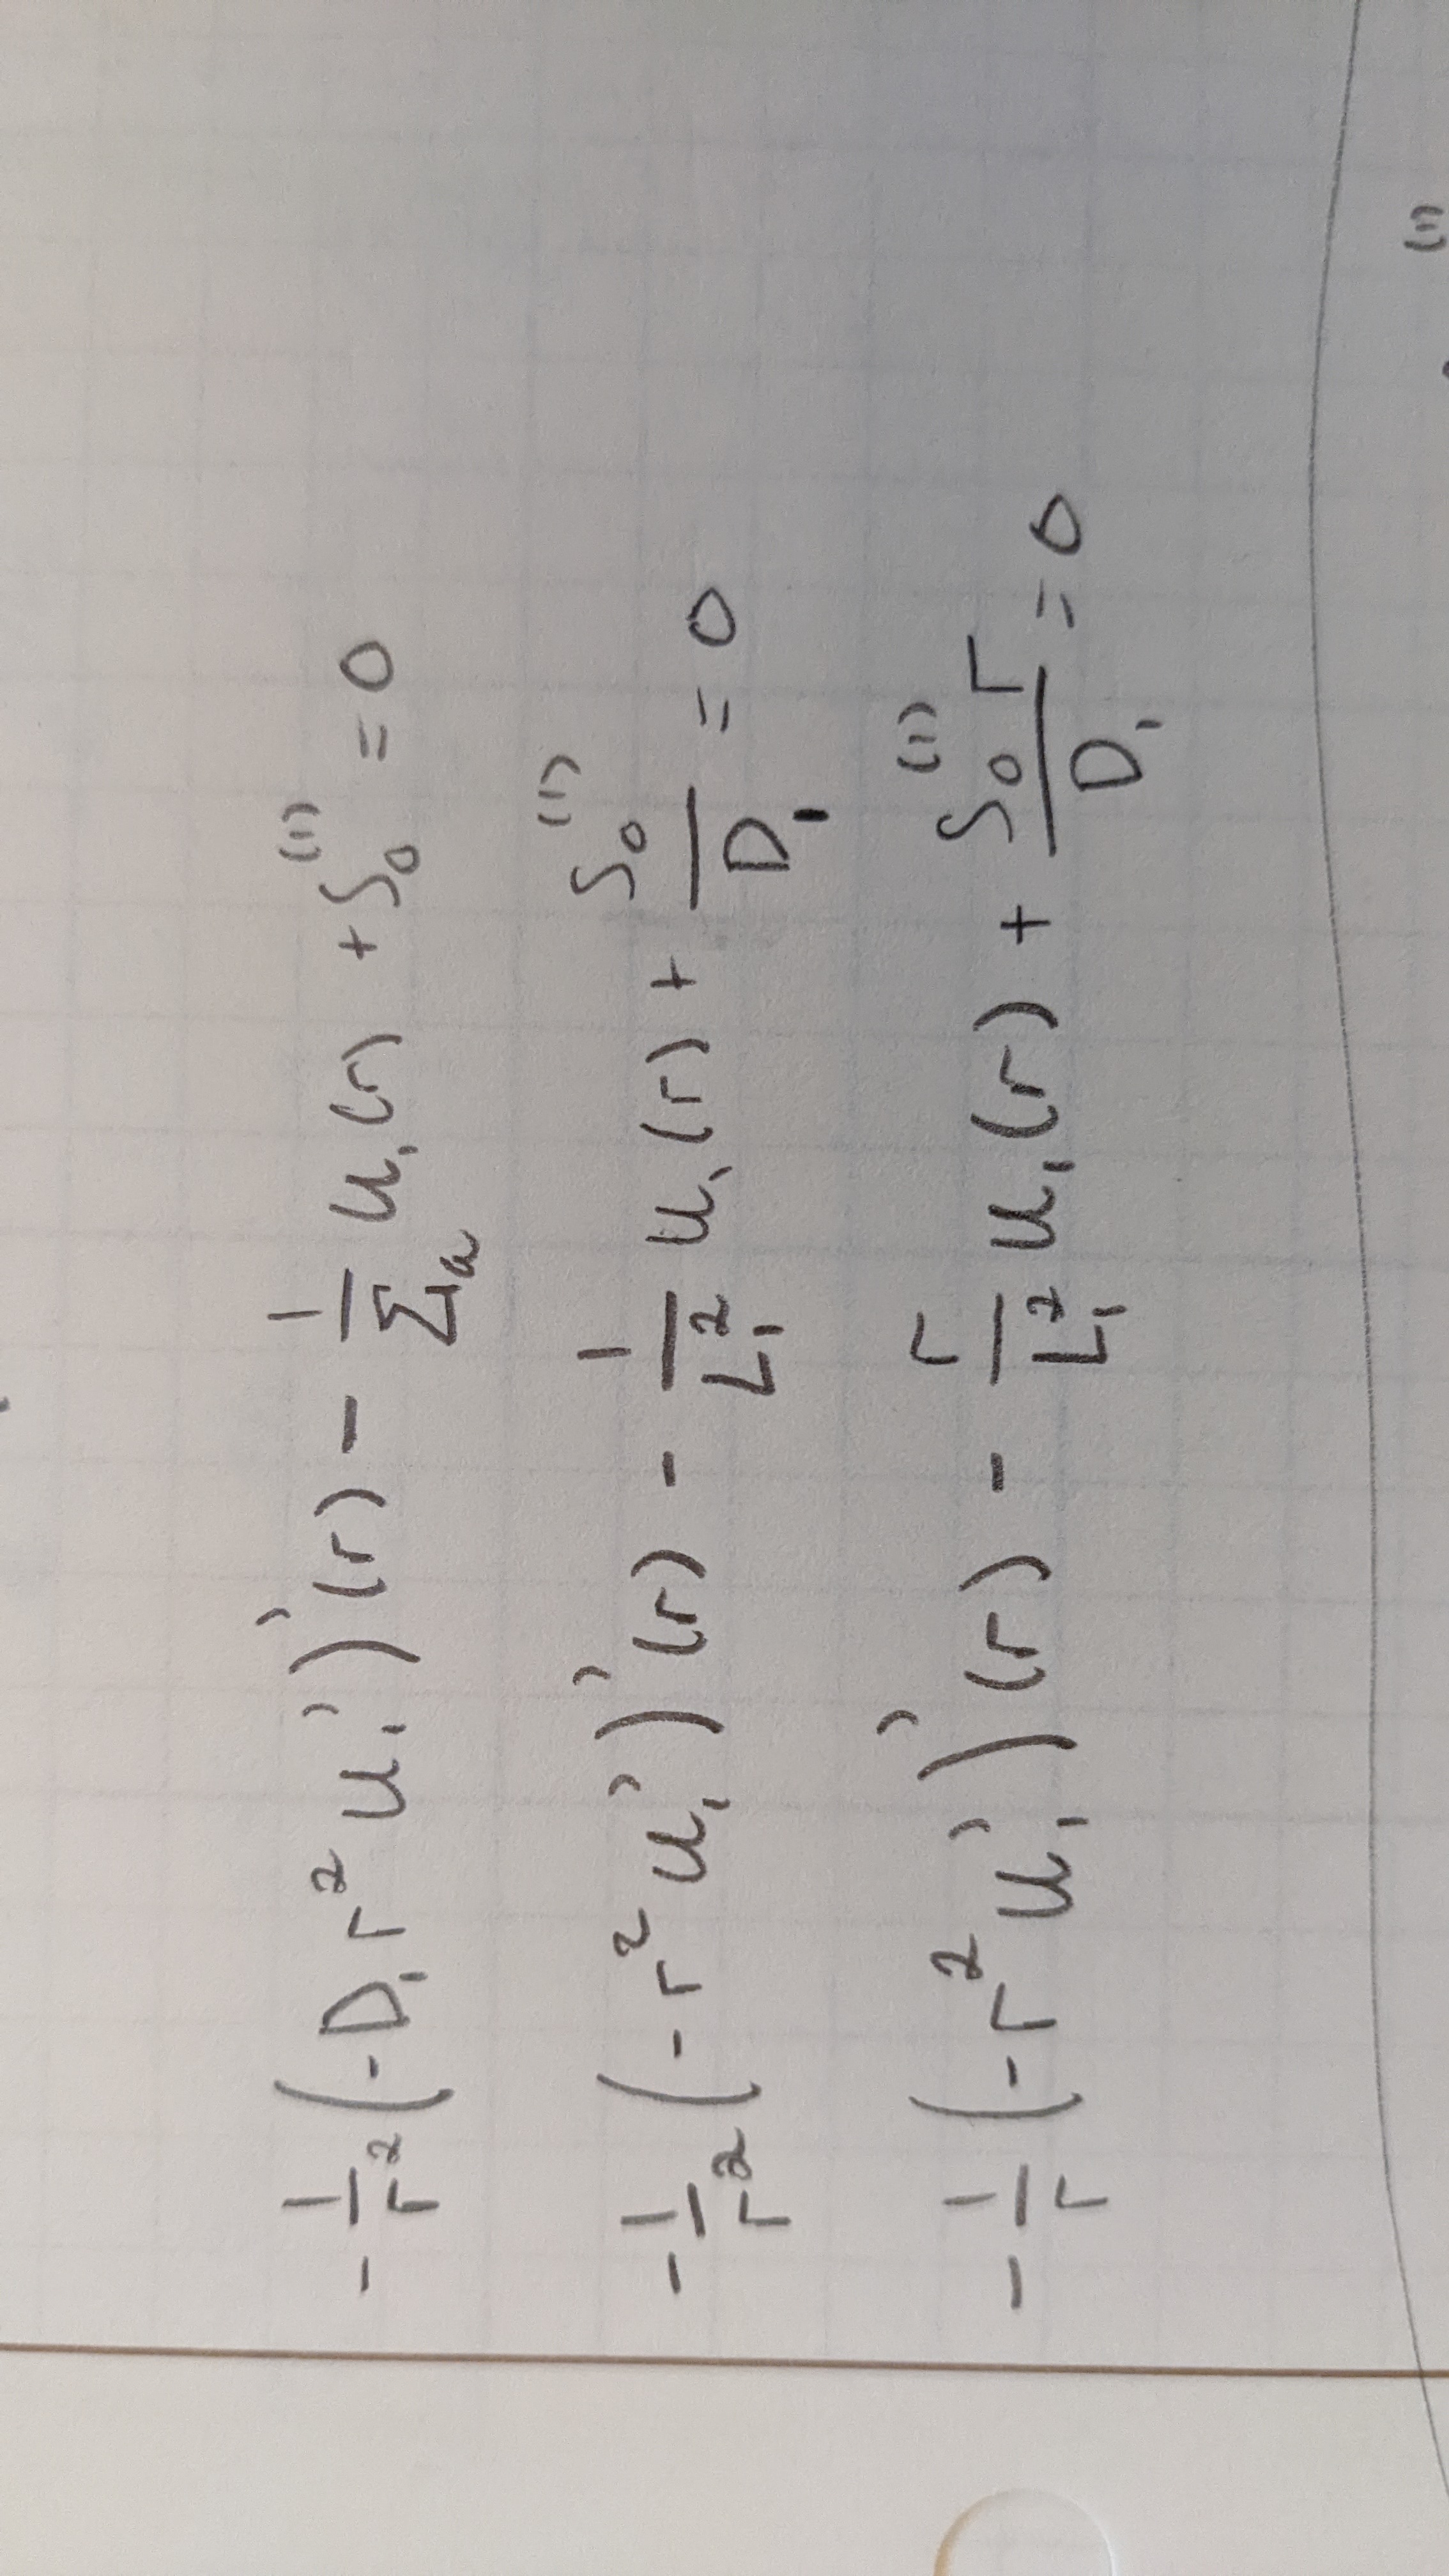 -1/r² (-D₁ r² u₁')'(r) - 1/Σ₁ₐ u₁(r) + S₀⁽¹⁾ = 0
-1/r² (-r² u₁')'(r) - 1/L₁² u₁(r) + S₀⁽¹⁾/D₁ = 0
-1/r (-r² u₁')'(r) - r/L₁² u₁(r) + S₀⁽¹⁾ r/D₁ = 0
(1)